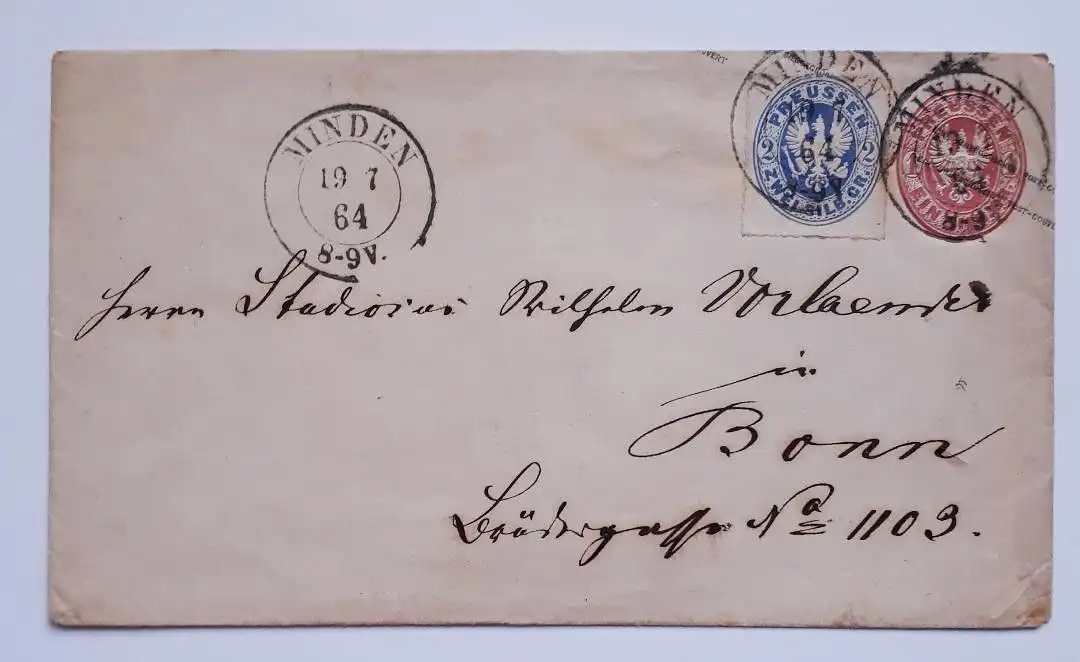 MINDEN
19 7
64
8-9V.
MINDEN
64
PREUSSEN
2 2
ZWEI SILB. GR.
MINDEN
PREUSSEN
8-9
Herrn Studiosus Wilhelm Vorlaender
in
Bonn
Brüdergasse No 1103.